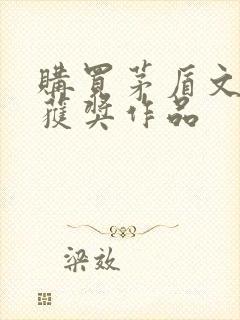 購買茅盾文
獲獎作品
梁效